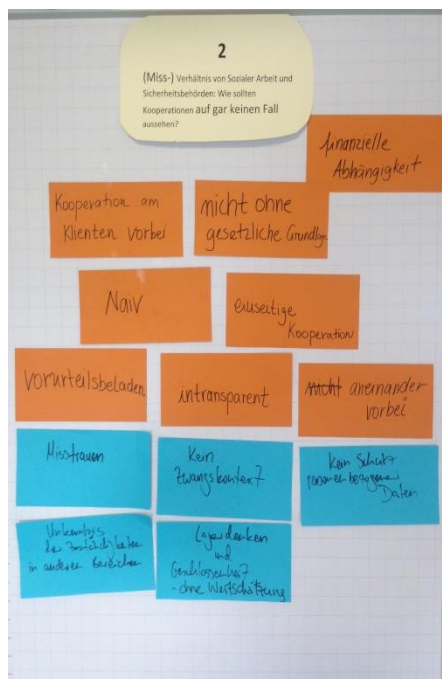 2
(Miss-) Verhältnis von Sozialer Arbeit und
Sicherheitsbehörden: Wie sollten
Kooperationen auf gar keinen Fall
aussehen?
finanzielle
Abhängigkeit
Kooperation am
Klienten vorbei
nicht ohne
gesetzliche Grundlage
Naiv
einseitige
Kooperation
vorurteilsbeladen
intransparent
nicht aneinander
vorbei
Misstrauen
Kein
Zwangskontext
Kein Schutz
personenbezogener
Daten
Unkenntnis
der Zuständigkeiten
in anderen Bereichen
Lagerdenken
und
Geschlossenheit
- ohne Wertschätzung